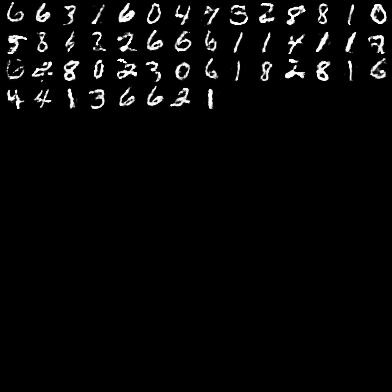 6 6 3 1 6 0 4 7 5 2 8 8 1 0
5 8 2 2 6 6 6 1 1 4 1 1 3
6 2 8 0 2 3 0 6 1 8 2 8 1 6
4 4 1 3 6 6 2 1